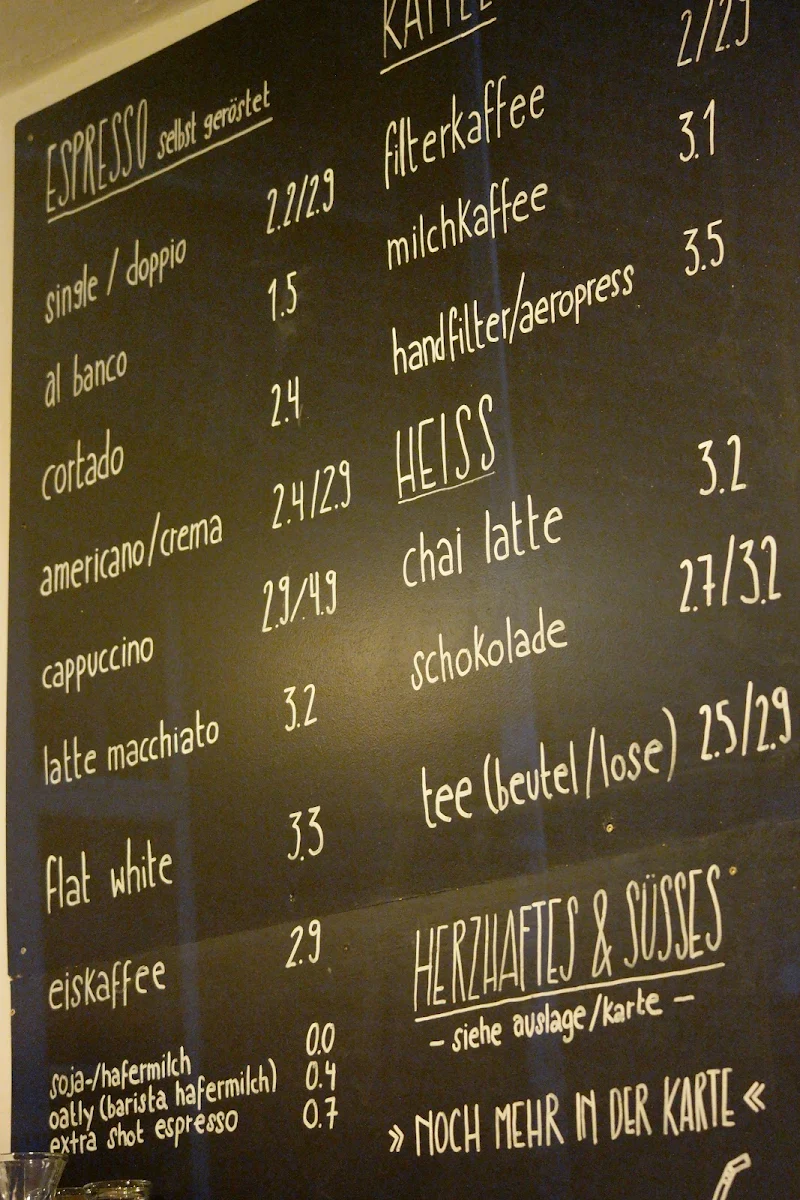 ESPRESSO selbst geröstet
single / doppio 2.2/2.9
al banco 1.5
cortado 2.4
americano/crema 2.4/2.9
cappuccino 2.9/4.9
latte macchiato 3.2
flat white 3.3
eiskaffee 2.9
soja-/hafermilch 0.0
oatly (barista hafermilch) 0.4
extra shot espresso 0.7
KAFFEE
filterkaffee 2/2.9
milchkaffee 3.1
handfilter/aeropress 3.5
HEISS
chai latte 3.2
schokolade 2.7/3.2
tee (beutel/lose) 2.5/2.9
HERZHAFTES & SÜSSES
– siehe auslage/karte –
» NOCH MEHR IN DER KARTE «